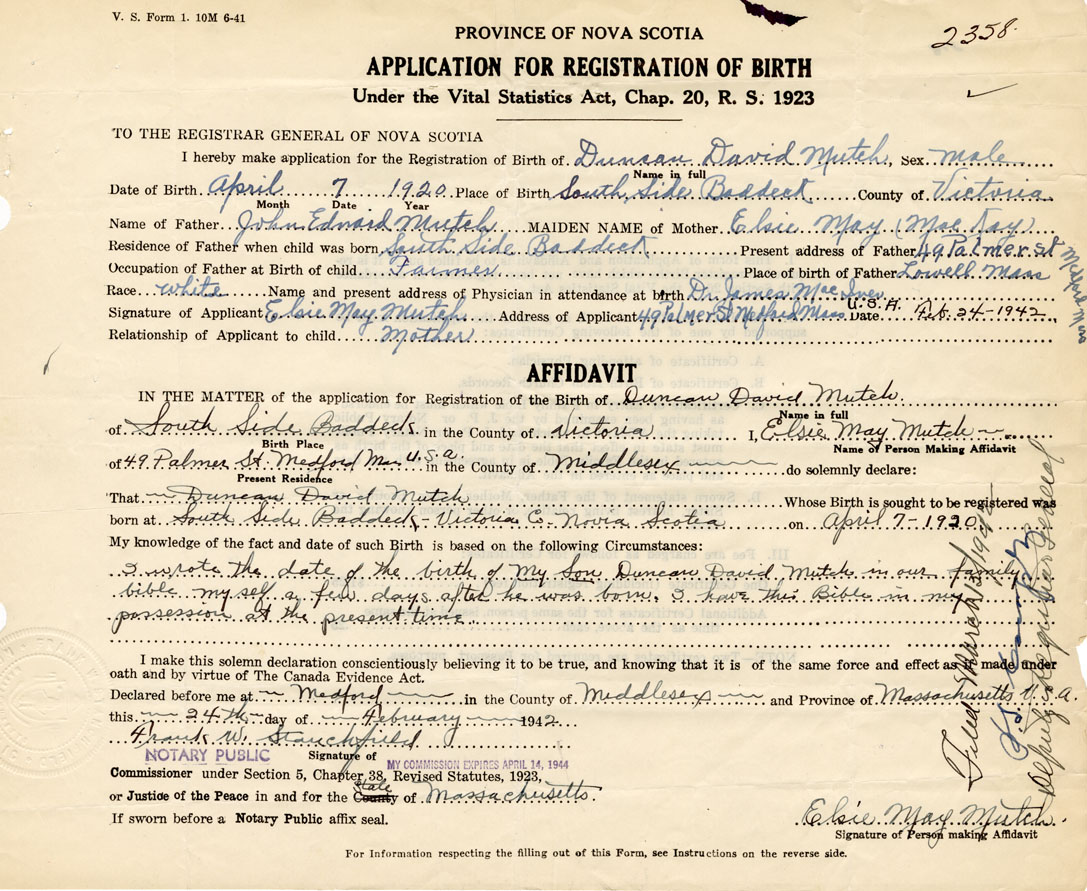 V. S. Form 1. 10M 6-41
2358.
PROVINCE OF NOVA SCOTIA
APPLICATION FOR REGISTRATION OF BIRTH
Under the Vital Statistics Act, Chap. 20, R. S. 1923
TO THE REGISTRAR GENERAL OF NOVA SCOTIA
I hereby make application for the Registration of Birth of Duncan David Mutch, Sex male
Name in full
Date of Birth April 7 1920. Place of Birth South Side Baddeck County of Victoria
Month Date Year
Name of Father John Edward Mutch MAIDEN NAME of Mother Elsie May (MacKay)
Residence of Father when child was born South Side Baddeck Present address of Father 49 Palmer St Medford Mass
Occupation of Father at Birth of child Farmer Place of birth of Father Lowell Mass
Race white Name and present address of Physician in attendance at birth Dr. James MacIver
Signature of Applicant Elsie May Mutch Address of Applicant 49 Palmer St Medford Mass U.S.A. Date Feb. 24-1942
Relationship of Applicant to child Mother
AFFIDAVIT
IN THE MATTER of the application for Registration of the Birth of Duncan David Mutch
Name in full
of South Side Baddeck in the County of Victoria I, Elsie May Mutch
Birth Place Name of Person Making Affidavit
of 49 Palmer St. Medford Mass U.S.a. in the County of Middlesex do solemnly declare:
Present Residence
That Duncan David Mutch Whose Birth is sought to be registered was
born at South Side Baddeck - Victoria Co. Novia Scotia on April 7-1920
My knowledge of the fact and date of such Birth is based on the following Circumstances:
I wrote the date of the birth of My Son Duncan David Mutch in our family
bible my self a few days after he was born. I have this Bible in my
possession at the present time.
I make this solemn declaration conscientiously believing it to be true, and knowing that it is of the same force and effect as if made under
oath and by virtue of The Canada Evidence Act.
Declared before me at Medford in the County of Middlesex and Province of Massachusetts U.S.a.
this 24th day of February 1942
Frank W. Stanchfield
NOTARY PUBLIC Signature of MY COMMISSION EXPIRES APRIL 14, 1944
Commissioner under Section 5, Chapter 38, Revised Statutes, 1923,
or Justice of the Peace in and for the County State of Massachusetts.
If sworn before a Notary Public affix seal.
Elsie May Mutch
Signature of Person making Affidavit
For Information respecting the filling out of this Form, see Instructions on the reverse side.
Filed March 23/1942
Deputy Registrar General